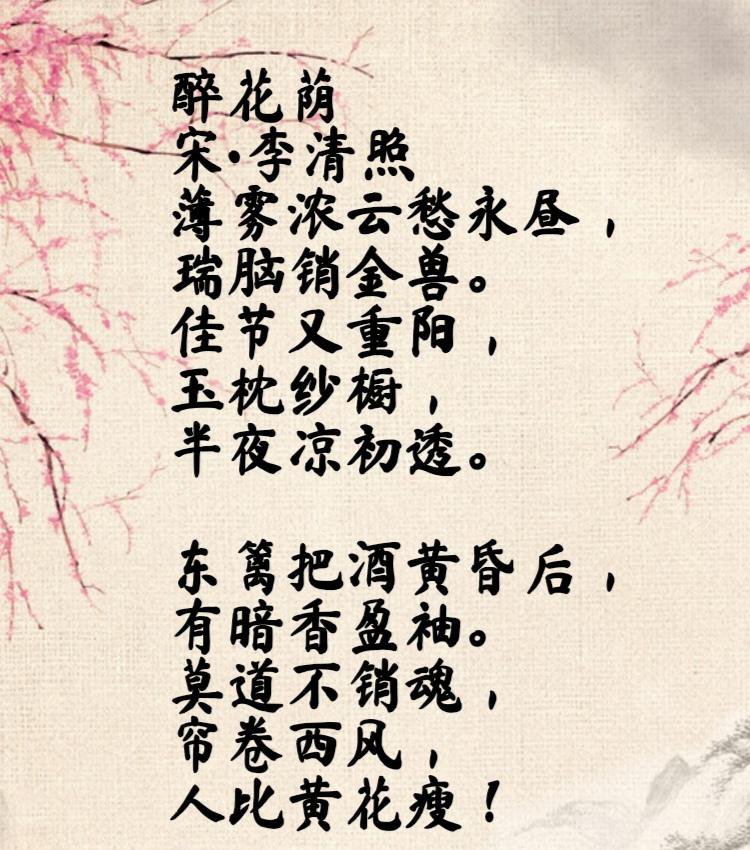 醉花荫
宋·李清照
薄雾浓云愁永昼，
瑞脑销金兽。
佳节又重阳，
玉枕纱橱，
半夜凉初透。
东篱把酒黄昏后，
有暗香盈袖。
莫道不销魂，
帘卷西风，
人比黄花瘦！